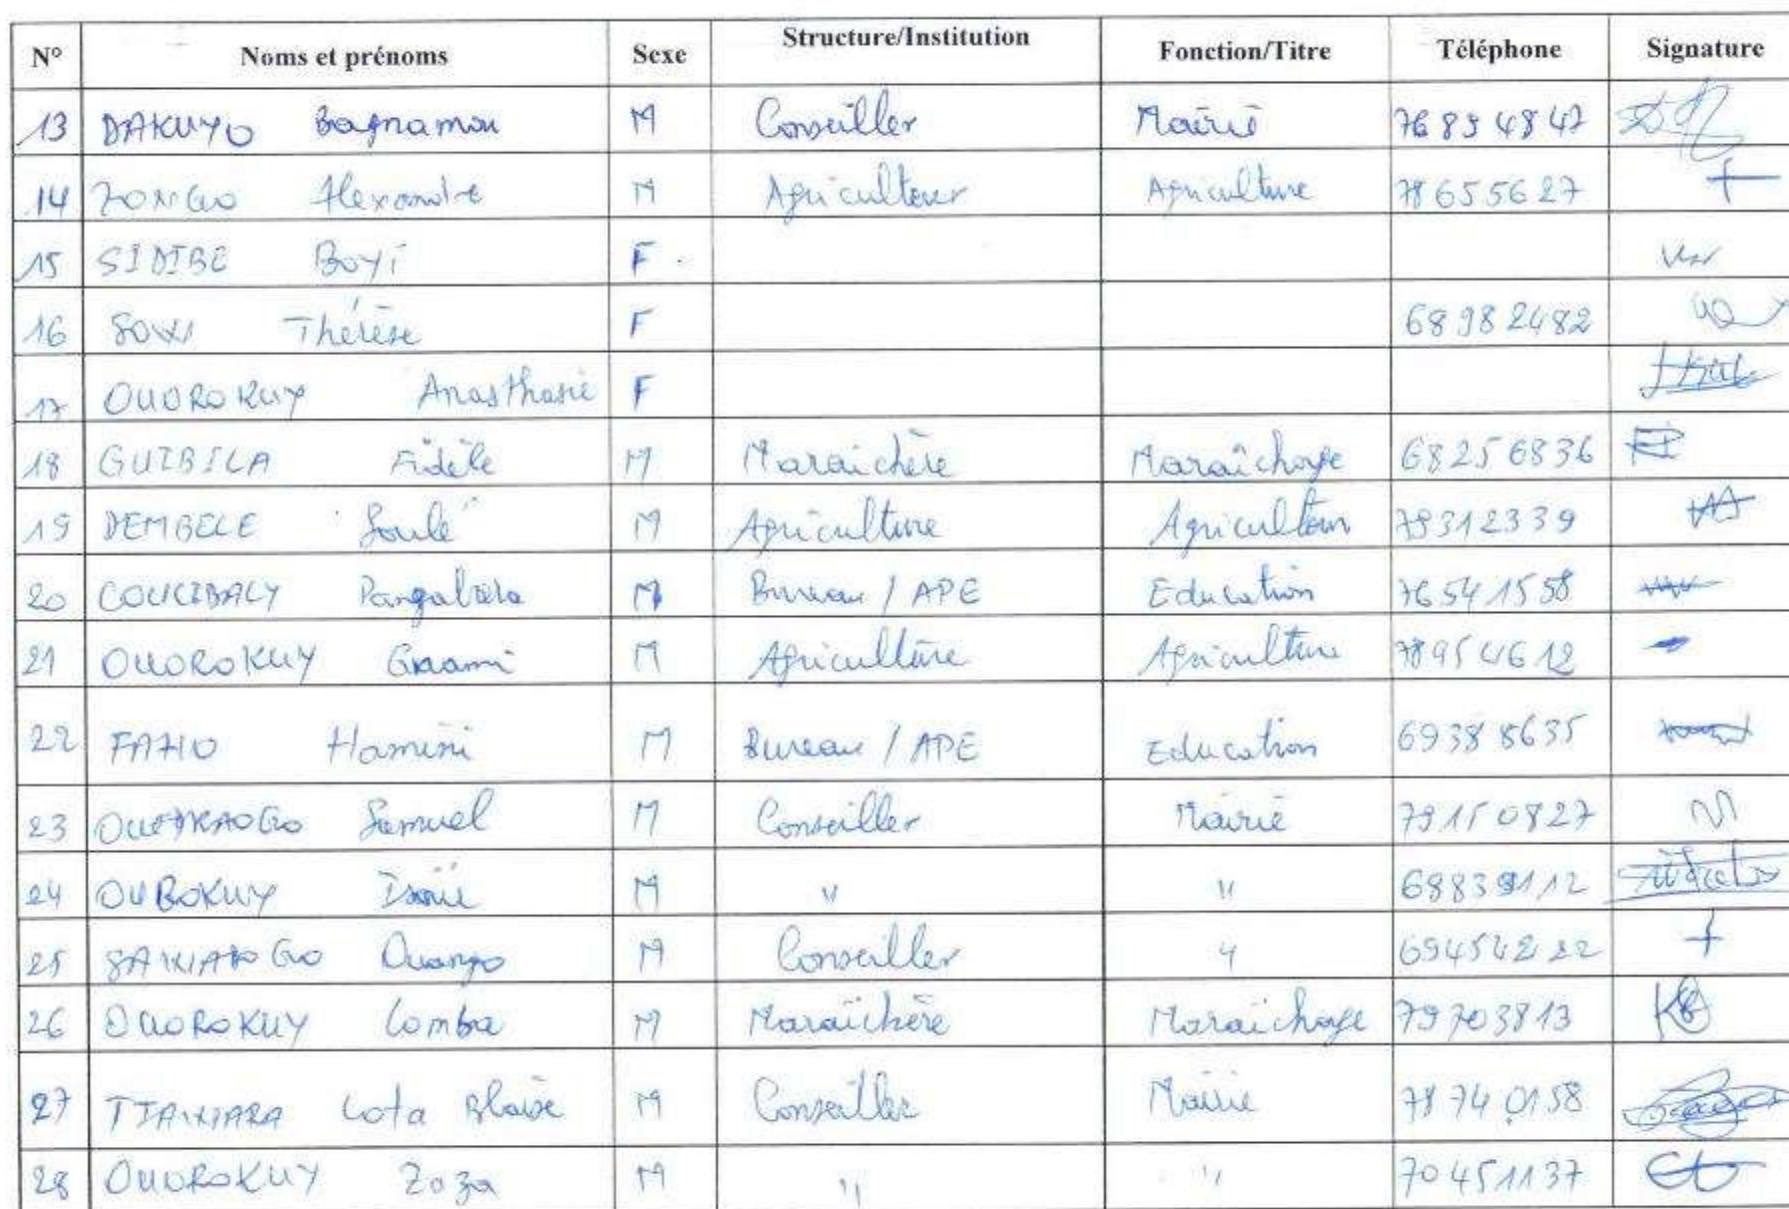 N° Noms et prénoms Sexe Structure/Institution Fonction/Titre Téléphone Signature
13 DAKUYO Bagnamou M Conseiller Mairie 76894847
14 ZONGO Alexandre M Agriculteur Agriculture 78655627
15 SIDIBE Boyi F
16 Thérèse F 68982482
17 OUOROKUY Anasthasie F
18 GUIBILA Fidèle M Maraichère Maraîchage 68256836
19 DEMBELE Soulé M Agriculture Agriculteur 79312339
20 COULIBALY M Bureau / APE Education 76541558
21 OUOROKUY M Agriculture Agriculture 78954612
22 FAHO Hamini M Bureau / APE Education 69388635
23 OUEDRAOGO Samuel M Conseiller Mairie 79150827
24 OUBOKUY M " "
25 Ouango M Conseiller " 69454222
26 OUOROKUY Comba M Maraîchère Maraichage 79703813
27 Lota Blaise M Conseiller Mairie 78740158
28 OUOROKUY Zoza M " " 70451137